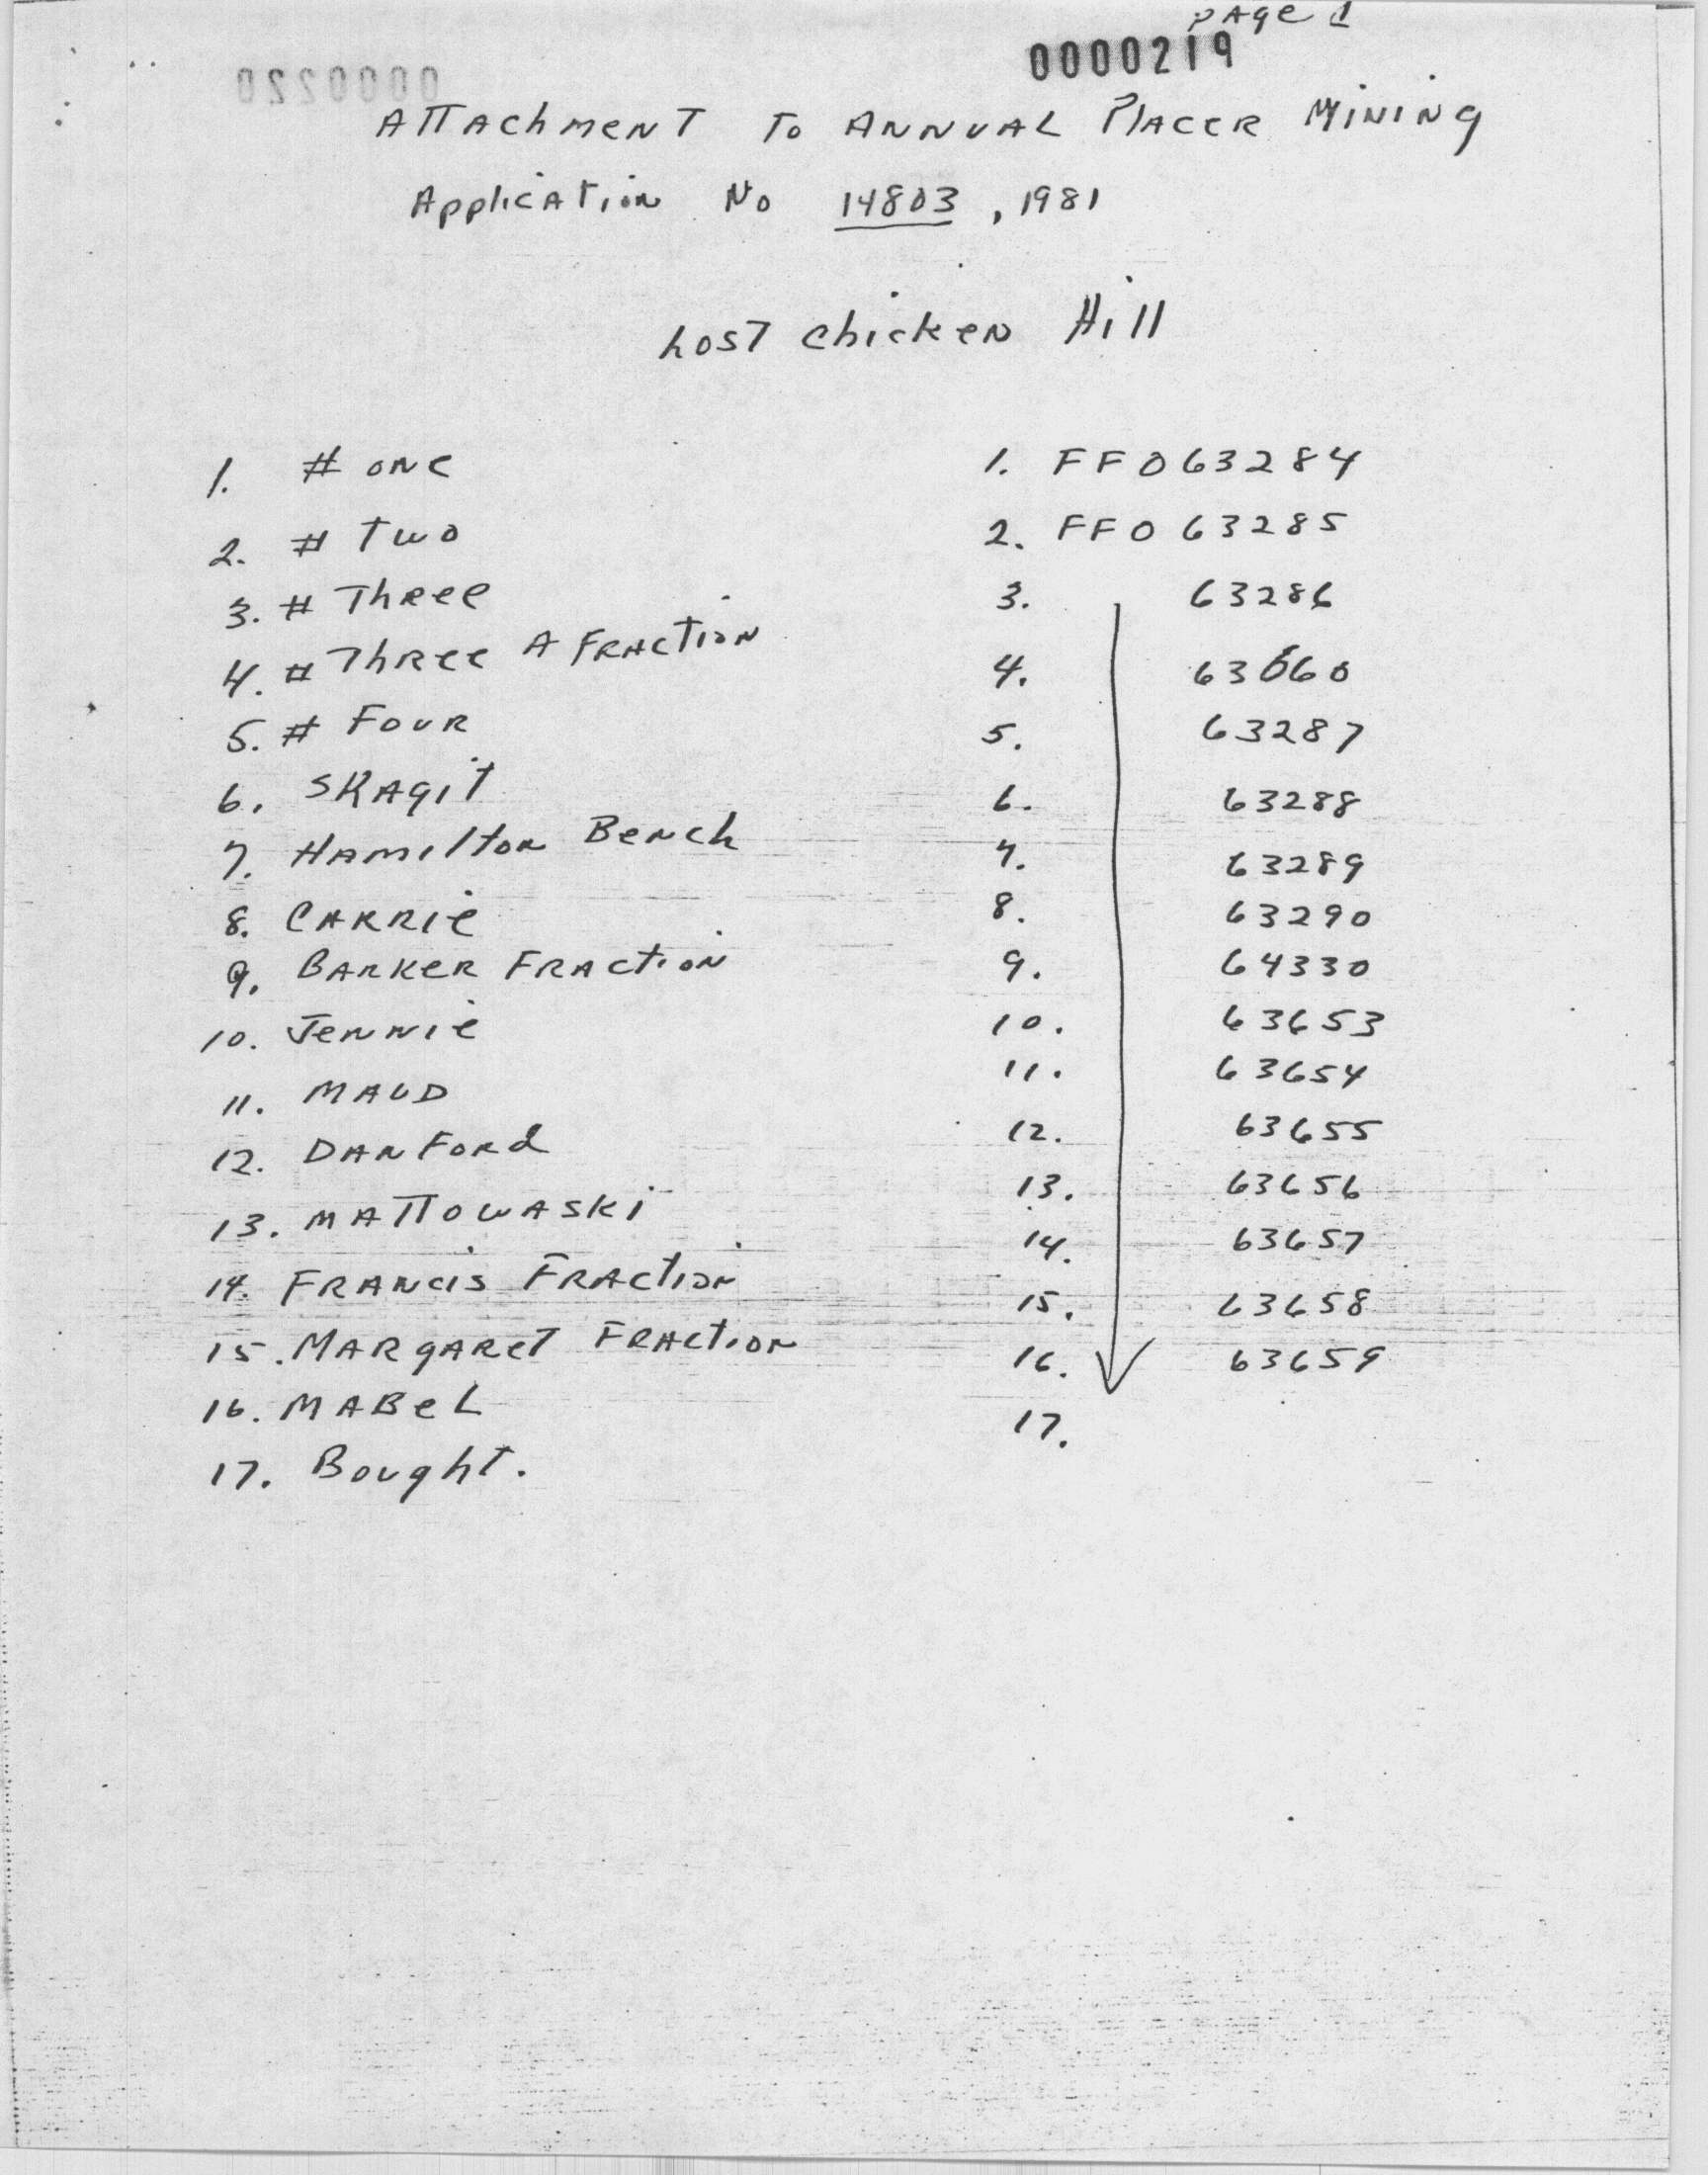 Page 1
0000219
0000220
Attachment To Annual Placer Mining
Application No 14803, 1981
Lost Chicken Hill
1. # One 1. FF063284
2. # Two 2. FF063285
3. # Three 3. 63286
4. # Three A Fraction 4. 63660
5. # Four 5. 63287
6. Skagit 6. 63288
7. Hamilton Bench 7. 63289
8. Carrie 8. 63290
9. Barker Fraction 9. 64330
10. Jennie 10. 63653
11. Maud 11. 63654
12. Danford 12. 63655
13. Mattowaski 13. 63656
14. Francis Fraction 14. 63657
15. Margaret Fraction 15. 63658
16. Mabel 16. 63659
17. Bought. 17.